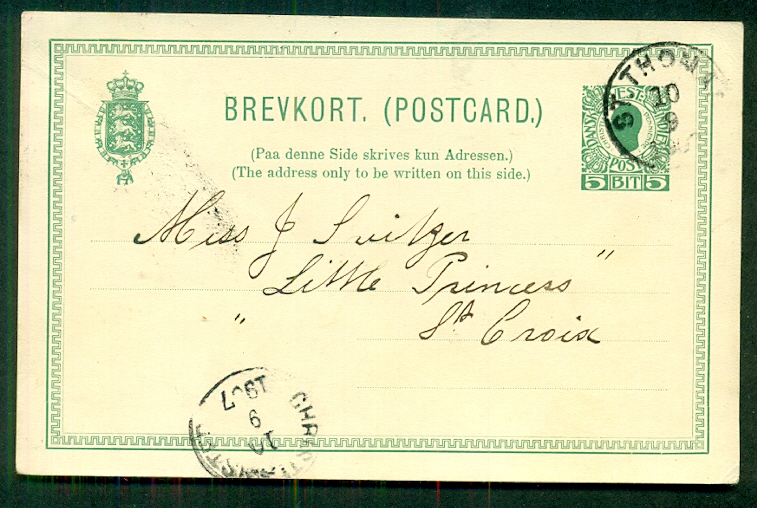 BREVKORT. (POSTCARD.)
(Paa denne Side skrives kun Adressen.)
(The address only to be written on this side.)
ST THOMA
10
9
DANSK VEST- INDIEN
POST
5 BIT 5
Miss J Switzer
Little Princess "
" St Croix
CHRISTI STED
10
9
1907